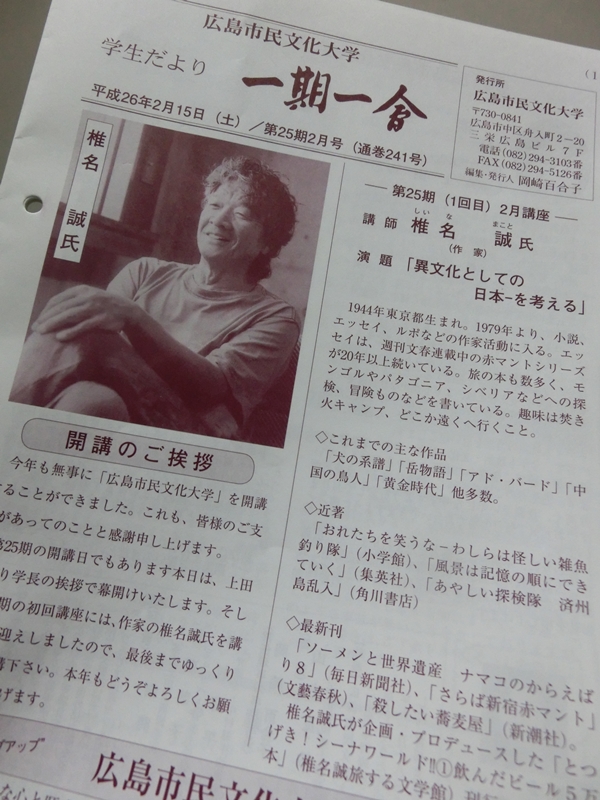 広島市民文化大学
学生だより
一期一會
平成26年2月15日（土）／第25期2月号（通巻241号）
(1
発行所
広島市民文化大学
〒730-0841
広島市中区舟入町2－20
三栄広島ビル7F
電話(082)294-3103番
FAX(082)294-5126番
編集・発行人 岡崎百合子
椎名 誠氏
開講のご挨拶
今年も無事に「広島市民文化大学」を開講
することができました。これも、皆様のご支
があってのことと感謝申し上げます。
第25期の開講日でもあります本日は、上田
り学長の挨拶で幕開けいたします。そし
期の初回講座には、作家の椎名誠氏を講
迎えしましたので、最後までゆっくり
講下さい。本年もどうぞよろしくお願
げます。
第25期（1回目）2月講座
しいな まこと
講師 椎名 誠氏
（作家）
演題 「異文化としての
日本－を考える」
1944年東京都生まれ。1979年より、小説、
エッセイ、ルポなどの作家活動に入る。エッ
セイは、週刊文春連載中の赤マントシリーズ
が20年以上続いている。旅の本も数多く、モ
ンゴルやパタゴニア、シベリアなどへの探
検、冒険ものなどを書いている。趣味は焚き
火キャンプ、どこか遠くへ行くこと。
◇これまでの主な作品
「犬の系譜」「岳物語」「アド・バード」「中
国の鳥人」「黄金時代」他多数。
◇近著
「おれたちを笑うな－わしらは怪しい雑魚
釣り隊」（小学館）、「風景は記憶の順にでき
ていく」（集英社）、「あやしい探検隊 済州
島乱入」（角川書店）
◇最新刊
「ソーメンと世界遺産 ナマコのからえば
り8」（毎日新聞社）、「さらば新宿赤マント」
（文藝春秋）、「殺したい蕎麦屋」（新潮社）。
椎名誠が企画・プロデュースした「とつ
げき！シーナワールド!!①飲んだビール5万
本」（椎名誠旅する文学館）刊行
イアップ
広島市民文化大